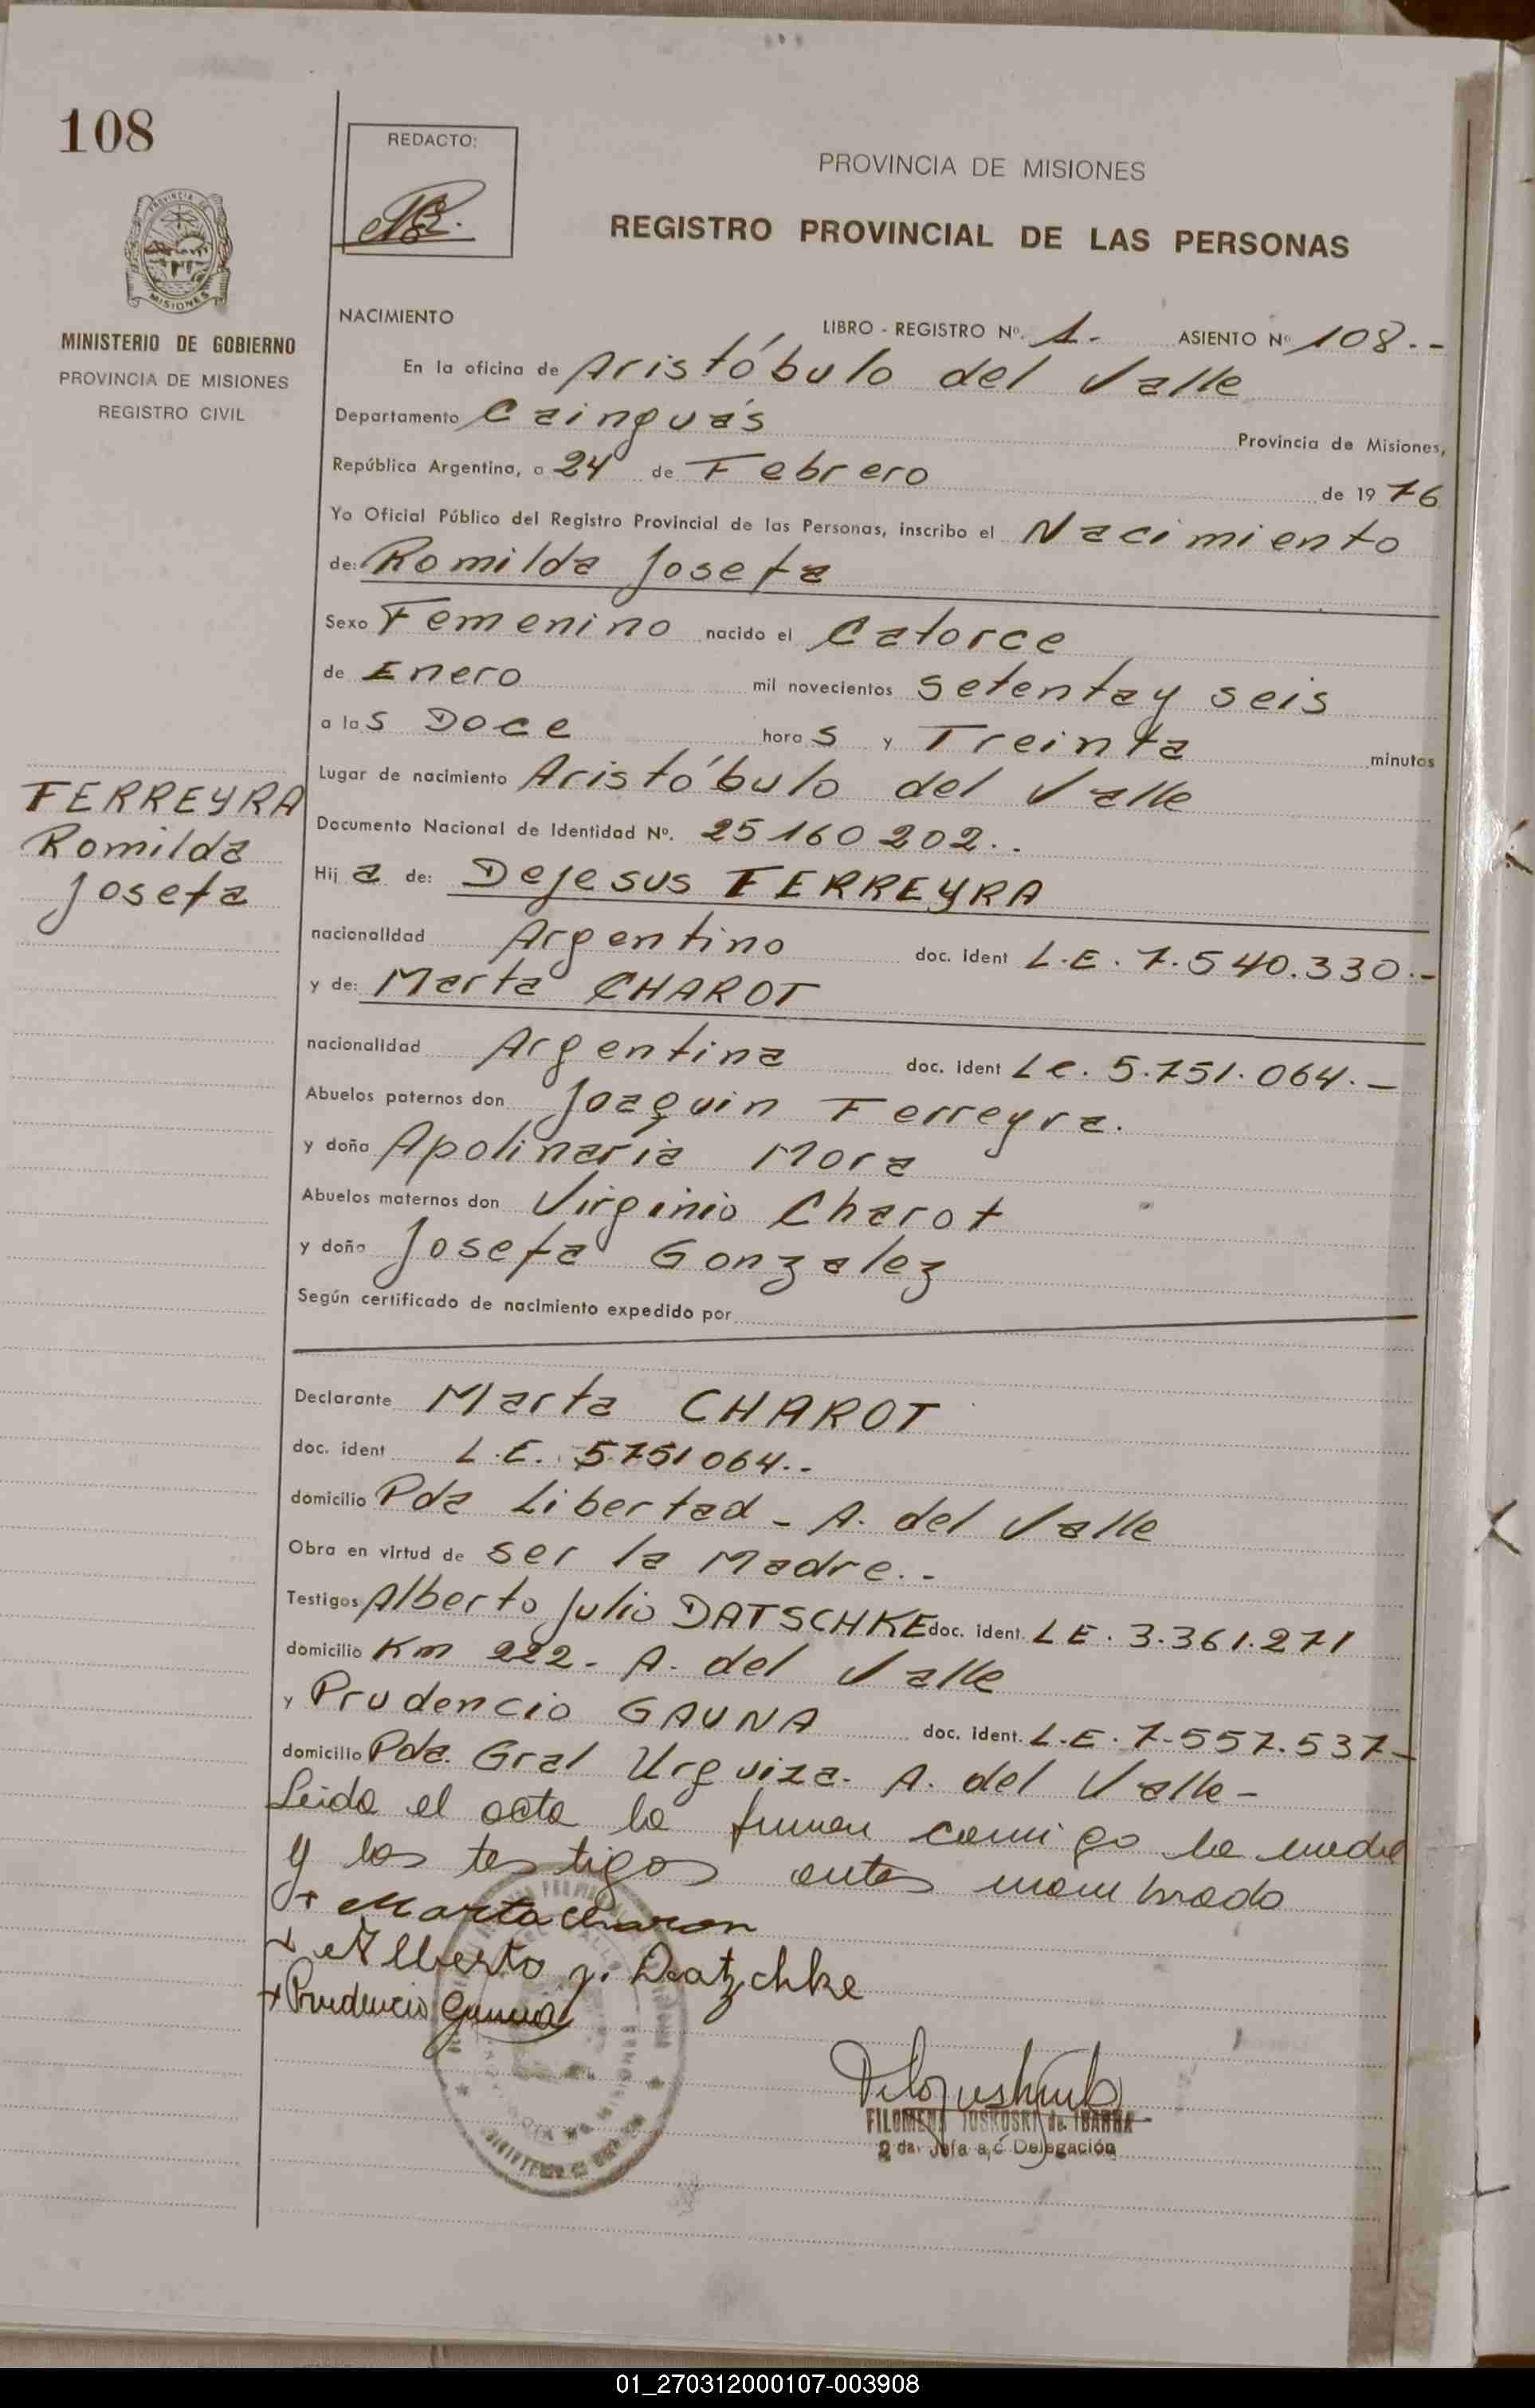 108
REDACTO:
PROVINCIA DE MISIONES
REGISTRO PROVINCIAL DE LAS PERSONAS
PROVINCIA DE
MISIONES
MINISTERIO DE GOBIERNO
PROVINCIA DE MISIONES
REGISTRO CIVIL
NACIMIENTO LIBRO - REGISTRO Nº. 1.- ASIENTO Nº 108.-
En la oficina de Aristóbulo del Valle
Departamento Cainguás Provincia de Misiones,
República Argentina, a 24 de Febrero de 1976
Yo Oficial Público del Registro Provincial de las Personas, inscribo el Nacimiento
de: Romilda Josefa
Sexo Femenino nacido el Catorce
de Enero mil novecientos setenta y seis
a las Doce horas y Treinta minutos
Lugar de nacimiento Aristóbulo del Valle
FERREYRA
Romilda
Josefa
Documento Nacional de Identidad Nº. 25160202..
Hija de: Dejesus FERREYRA
nacionalidad Argentino doc. ident L.E. 7.540.330.-
y de: Marta CHAROT
nacionalidad Argentina doc. ident Lc. 5.751.064.-
Abuelos paternos don Joaquin Ferreyra.
y doña Apolinaria Mora
Abuelos maternos don Virginio Charot
y doña Josefa Gonzalez
Según certificado de nacimiento expedido por
Declarante Marta CHAROT
doc. ident L.E. 5751064..
domicilio Pda Libertad - A. del Valle
Obra en virtud de ser la Madre..
Testigos Alberto Julio DATSCHKE doc. ident. LE. 3.361.271
domicilio Km 222- A. del Valle
y Prudencio GAUNA doc. ident. L.E. 7.557.537-
domicilio Pda. Gral Urquiza. A. del Valle-
Leida el acta la firman comigo la madre
y los testigos antes nombrado
+ Marta Charon
+ Alberto J. Datzchke
+ Prudencio Gauna
FILOMENA IUSKOSKI de IBARRA
2 da. Jefa a/c Delegación
01_270312000107-003908